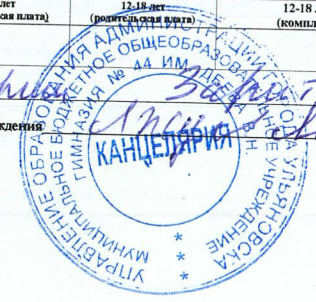 лет 12-18 лет 12-18 л
кая плата) (родительская плата) (компл
ждения
УПРАВЛЕНИЕ ОБРАЗОВАНИЯ АДМИНИСТРАЦИИ ГОРОДА УЛЬЯНОВСКА
МУНИЦИПАЛЬНОЕ БЮДЖЕТНОЕ ОБЩЕОБРАЗОВАТЕЛЬНОЕ УЧРЕЖДЕНИЕ
ГИМНАЗИЯ № 44 ИМ. ДЕЕВА В.Н.
КАНЦЕЛЯРИЯ
* * *